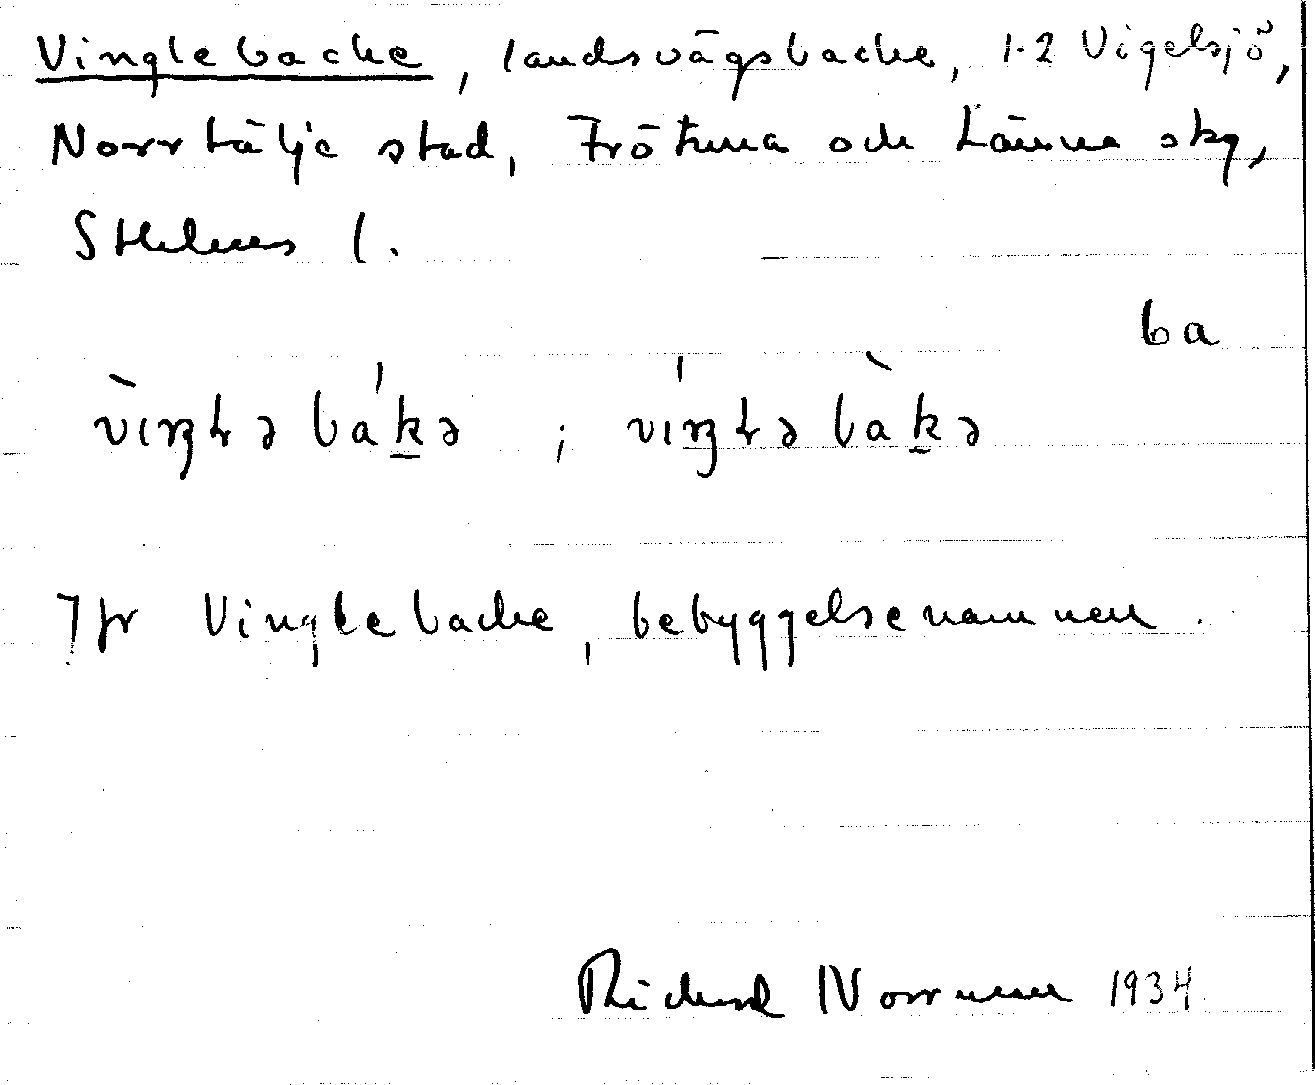 Vinglebacke, landsvägsbacke, 1-2 Vigelsjö,
Norrtälje stad, Frötuna och Länna skg,
Sthlms l.
ba
vìŋłə bákə ; víŋłə bàkə
Jfr Vinglebacke, bebyggelsenamnen.
Rickard Norrman 1934